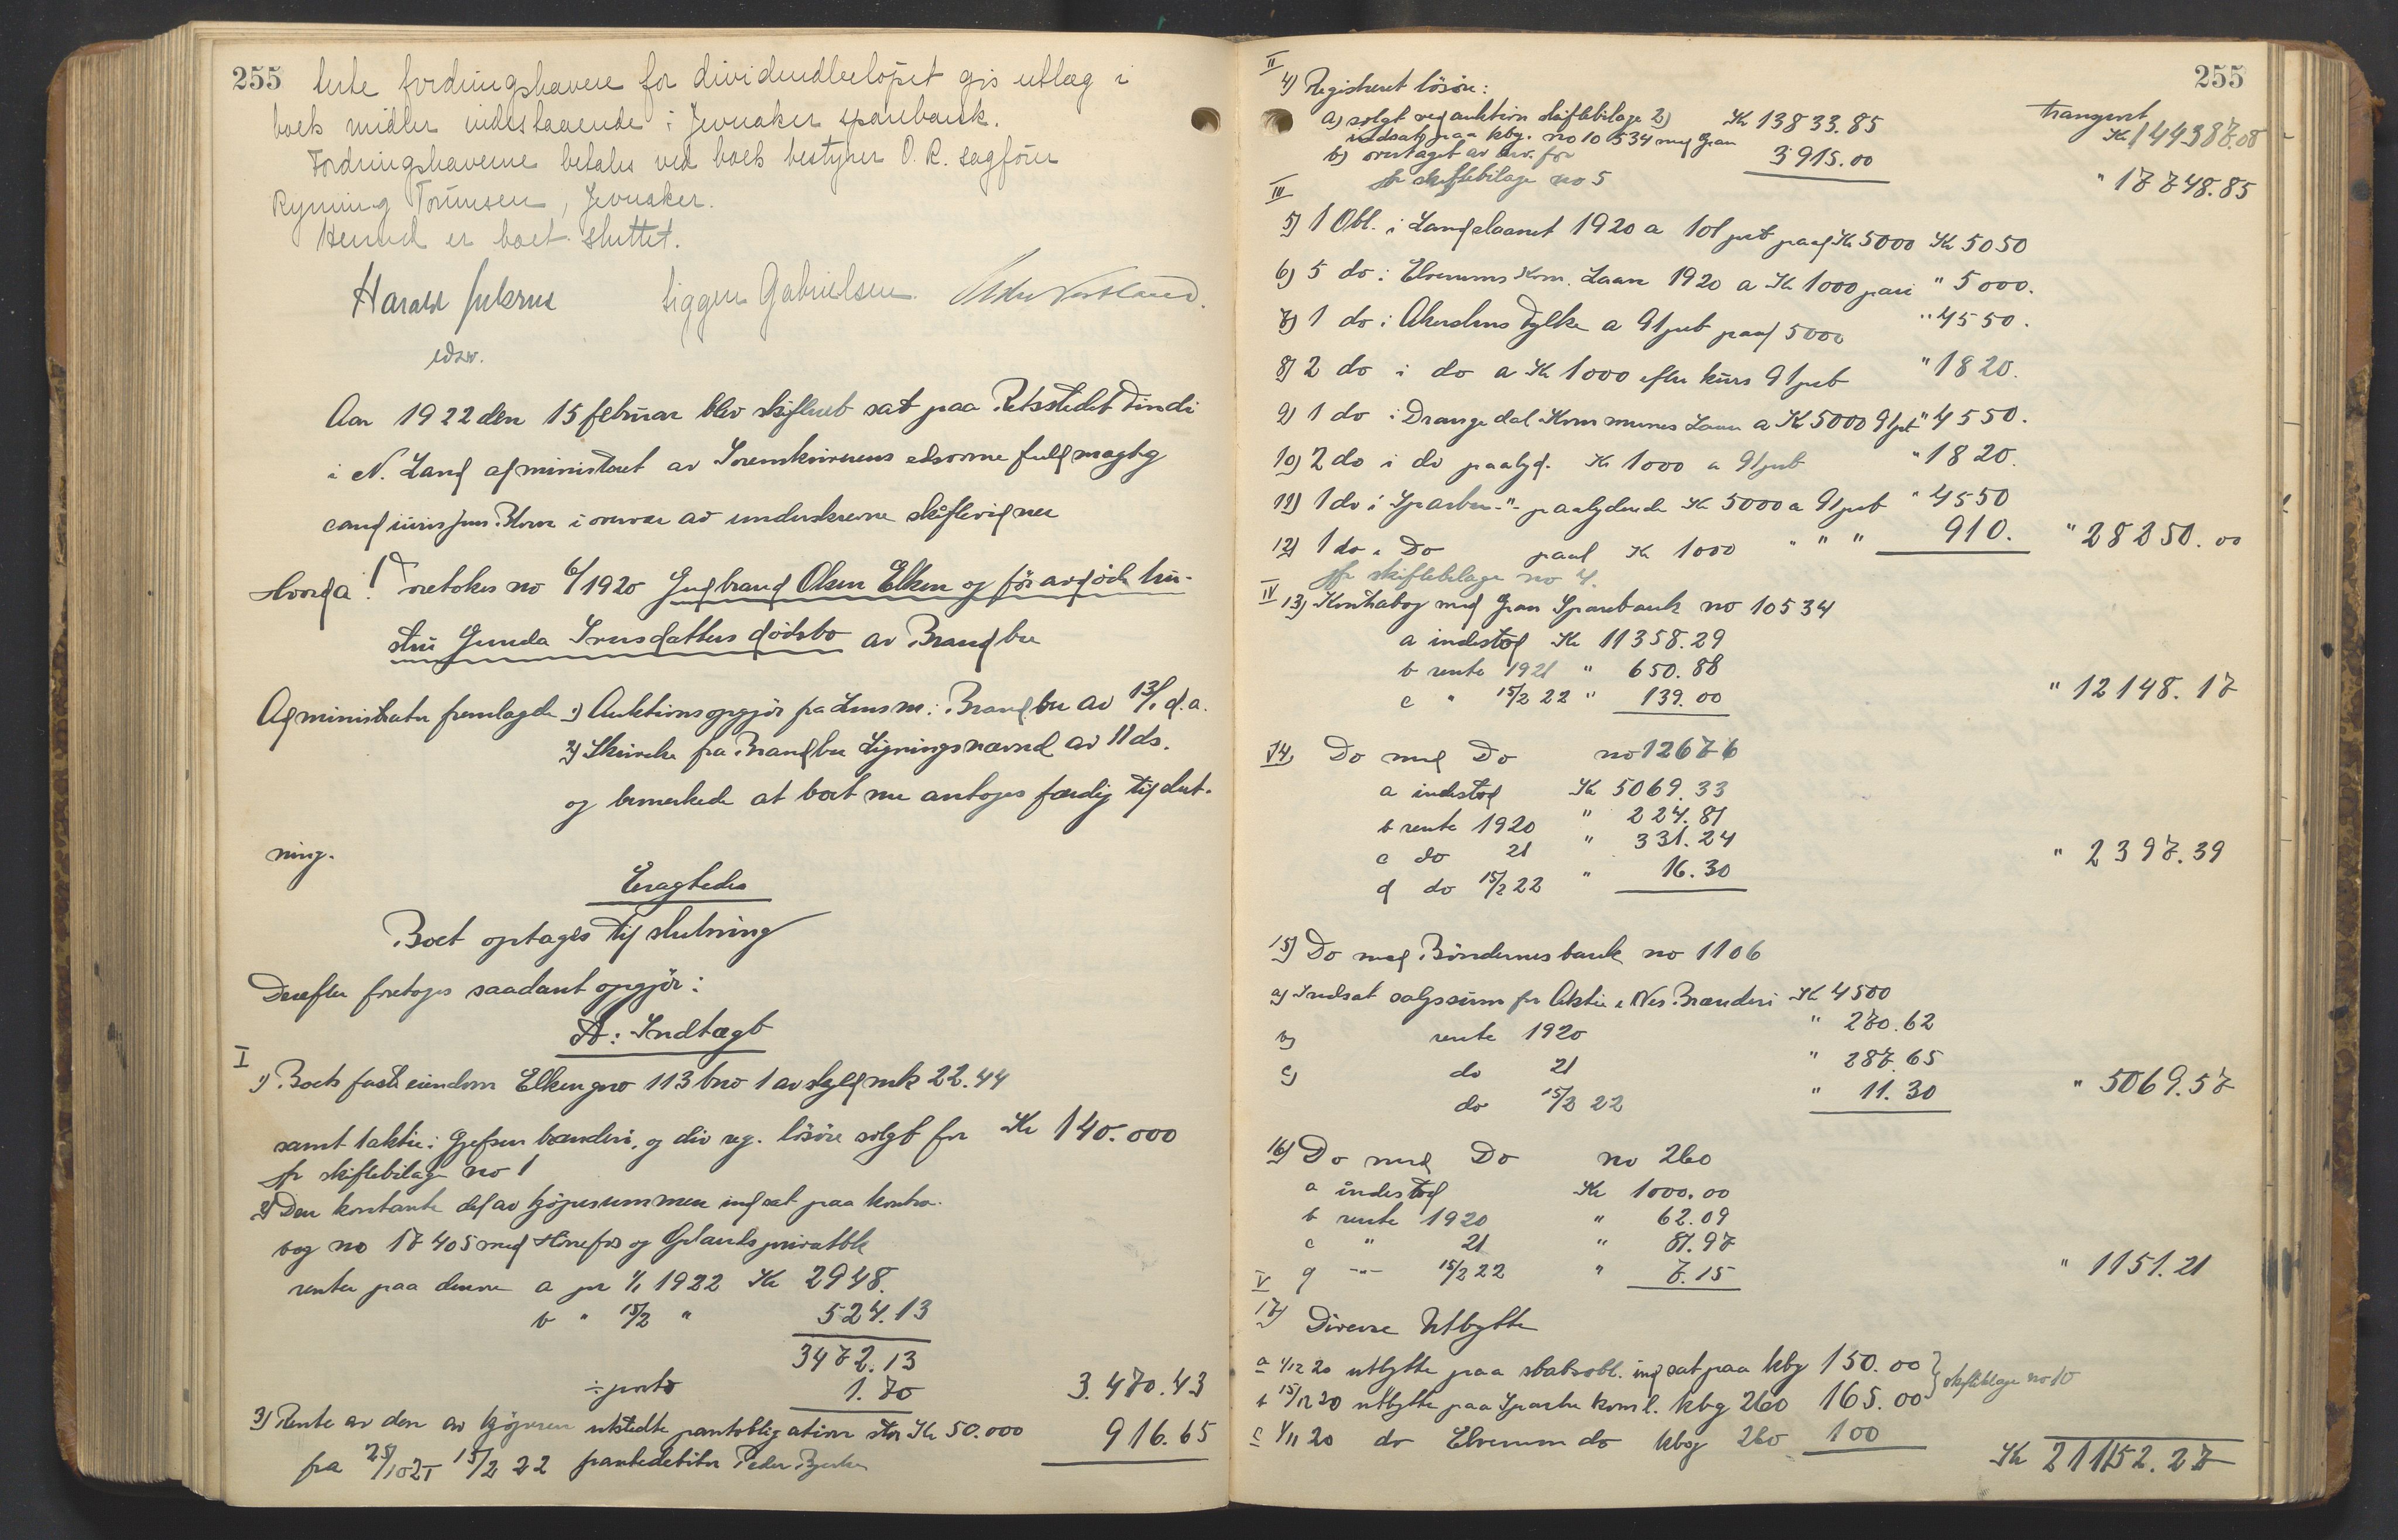 255
lerte fordringshavere for dividendbeløpet gis utlæg i
boets midler indestaaende i Jevnaker sparebank.
Fordringshaverne betales ved boets bestyrer O. R. sagfører
Ryning Tønnesen, Jevnaker.
Hermed er boet sluttet.
Harald
Sigger Gabrielsen.
edsv.
Aar 1922 den 15 februar blev skifteret sat paa Retsstedet Tindi
i N. Land administreret av Sorenskriverens edsvorne fuldmægtig
cand juris Jens Blom i overvær av underskrevne skiftevidner
Hvorda! Foretokes no 6/1920 Gudbrand Olsen Elken og før avdøde hu-
stru Gunda Iversdatters dødsbo av Brandbu
Administrator fremlagde 1) Auktionsopgjør fra Lensm. i Brandbu av 13/1 d.a.
2) Skrivelse fra Brandbu Ligningsnævnd av 11 ds.
og bemerkede at boet nu antoges færdig til slut-
ning.
Eragtedes
Boet optages til slutning
Derefter foretoges saadant opgjør:
A: Indtægt
I
1) Boets faste eiendom Elken gno 113 bno 1 av skyld mk 22.44
samt 1 aktie i Gjefsen brænderi, og div reg. løsøre solgt for Kr 140.000
jfr skiftebilage no 1
2) Den kontante del av kjøpesummen indsat paa kontra-
bog no 17405 med Hönefos og Oplands privatbk
renter paa denne a pr 1/1 1922 Kr 2948.
b " 15/2 " 524.13
3472.13
÷ porto 1.70 3.470.43
3) Rente av den av kjøperen utstedte pantobligation stor Kr 50.000 916.65
fra 25/10 21 15/2 22 pantedebitor Peder Bjerke
255
II
4) Registreret løsøre:
transport
a) solgt ved auktion skiftebilage 2) Kr 13833.85 Kr 144387.08
indsat paa kbg. no 10534 med Gran
b) overtaget av arv. for 3915.00
jfr skiftebilage no 5 " 17748.85
III
5) 1 Obl. i Landslaanet 1920 a 101 pct paal Kr 5000 Kr 5050
6) 5 do i Elverums Kom. Laan 1920 a Kr 1000 pari " 5000.
7) 1 do i Akershus Fylke a 91 pct paal 5000 " 4550.
8) 2 do i do a Kr 1000 efter kurs 91 pct " 1820.
9) 1 do i Drangedal Kommunes Laan a Kr 5000 91 pct " 4550.
10) 2 do i do paalyd. Kr 1000 a 91 pct " 1820.
11) 1 do i Sparbu -"- paalydende Kr 5000 a 91 pct " 4550
12) 1 do i Do paal Kr 1000 " " " 910. " 28250.00
jfr skiftebilage no 4.
IV
13) Kontrabog med Gran Sparebank no 10534
a indestod Kr 11358.29
b rente 1921 " 650.88
c " 15/2 22 " 139.00 " 12148.17
14) Do med Do no 12676
a indestod Kr 5069.33
b rente 1920 " 224.81
c do 21 " 331.24
d do 15/2 22 " 16.30 " 2397.39
15) Do med Bøndernes bank no 1106
a) Indsat salgssum for Aktie i Nes Brænderi Kr 4500
b) rente 1920 " 270.62
c) do 21 " 287.65
do 15/2 22 " 11.30 " 5069.57
16) Do med Do no 260
a indestod Kr 1000.00
b rente 1920 " 62.09
c " 21 " 81.97
d -"- 15/2 22 " 7.15 " 1151.21
V
17) Diverse Utbytte
a 1/12 20 utbytte paa statsobl. indsat paa kbg 150.00
b 15/12 20 utbytte paa Sparbu koml. kbg 260 165.00 } skiftebilage no 10
c 1/11 20 do Elverum do kbog 260 100
Kr 211152.27